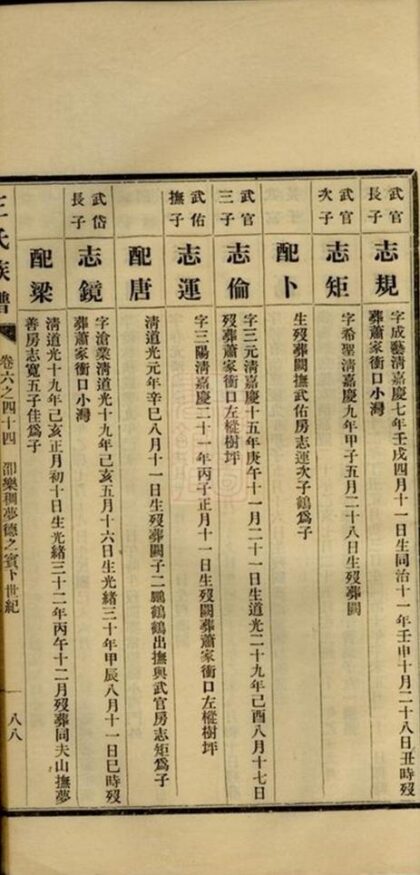 武官
長子
志規
字成藝清嘉慶七年壬戌四月十一日生同治十一年壬申十月二十八日丑時歿
葬蕭家衝口小灣
武官
次子
志矩
字希聖清嘉慶九年甲子五月二十八日生歿葬闕
配卜
生歿葬闕撫武佑房志運次子鶴爲子
武官
三子
志倫
字三元清嘉慶十五年庚午十一月二十一日生道光二十九年己酉八月十七日
歿葬蕭家衝口左樅樹坪
武佑
撫子
志運
字三陽清嘉慶二十一年丙子正月十一日生歿闕葬蕭家衝口左樅樹坪
配唐
清道光元年辛巳八月十一日生歿葬闕子二鵬鶴鶴出撫與武官房志矩爲子
武岱
長子
志鏡
字滄業清道光十九年己亥五月十六日生光緒三十年甲辰八月十一日巳時歿
葬蕭家衝口小灣
配梁
清道光十九年己亥正月初十日生光緒三十二年丙午十二月歿葬同夫山撫夢
善房志寬五子佳爲子
王氏族譜
卷六之四十四
卲樂稠夢德之賓卞世紀
八八